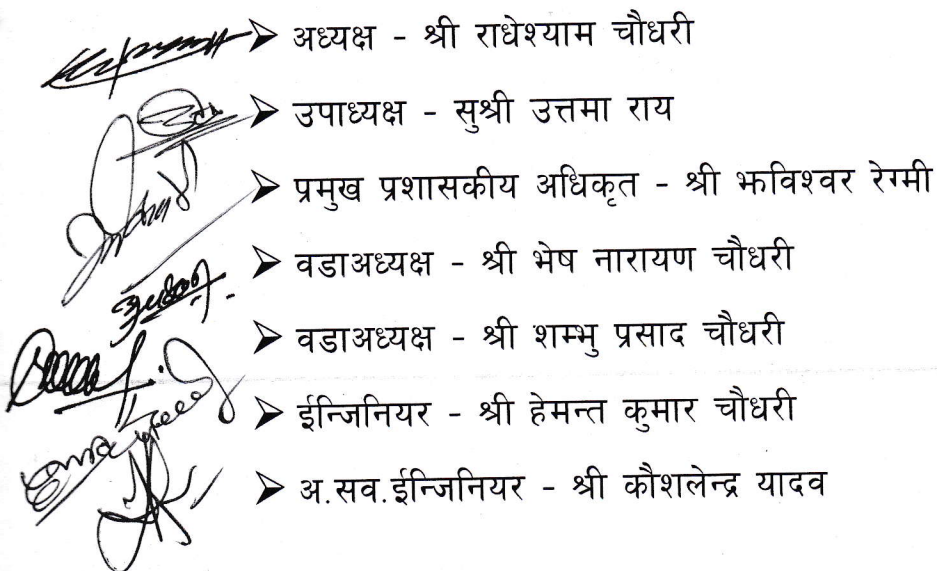 ➢ अध्यक्ष - श्री राधेश्याम चौधरी
➢ उपाध्यक्ष - सुश्री उत्तमा राय
➢ प्रमुख प्रशासकीय अधिकृत - श्री झविश्वर रेग्मी
➢ वडाअध्यक्ष - श्री भेष नारायण चौधरी
➢ वडाअध्यक्ष - श्री शम्भु प्रसाद चौधरी
➢ ईन्जिनियर - श्री हेमन्त कुमार चौधरी
➢ अ.सव.ईन्जिनियर - श्री कौशलेन्द्र यादव